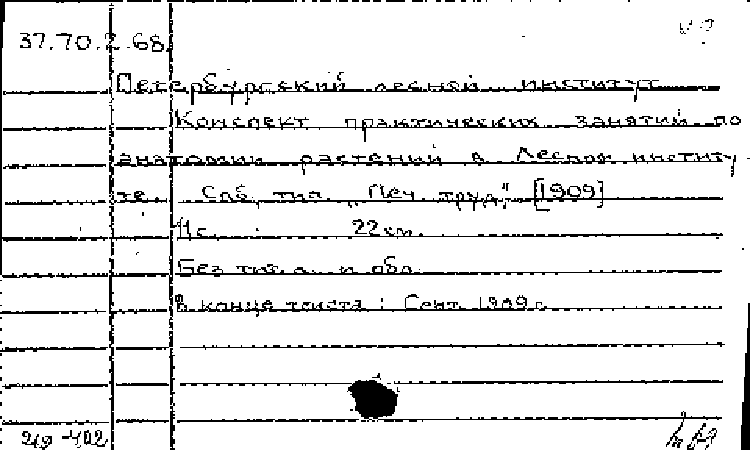 37.70.2.68
Петербургский лесной институт
Конспект практических занятий по
анатомии растений в Лесном институ-
те. Спб, тип. "Печ. труд", [1909]
11 с. 22 см.
Без тит. л. и обл.
В конце текста: Сент. 1909 г.